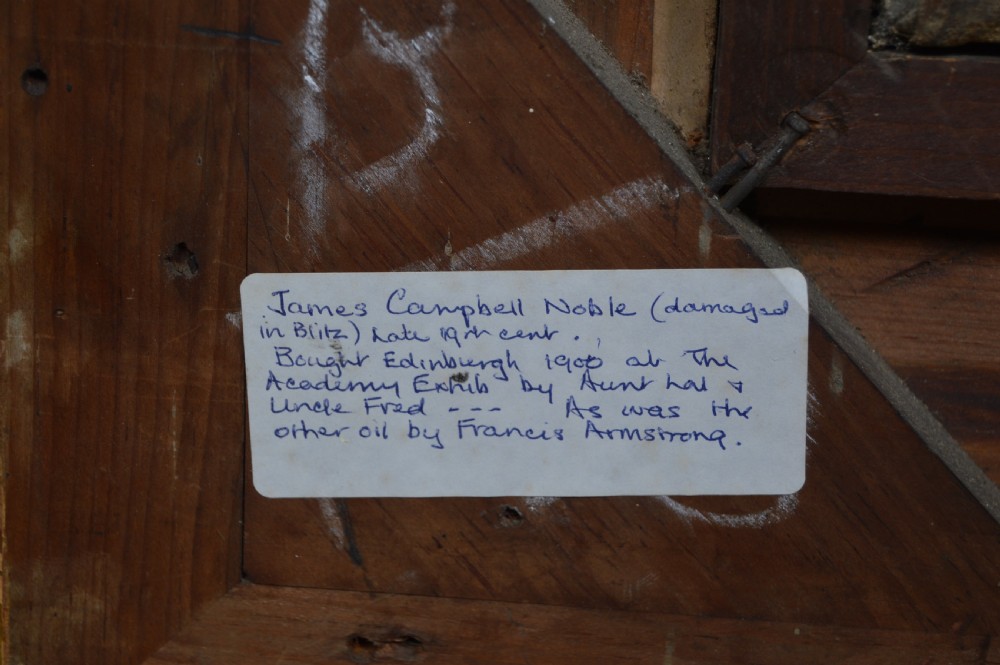 James Campbell Noble (damaged
in Blitz) Late 19th cent . ,
Bought Edinburgh 1900 at The
Academy Exhib by Aunt Lal &
Uncle Fred --- As was the
other oil by Francis Armstrong.